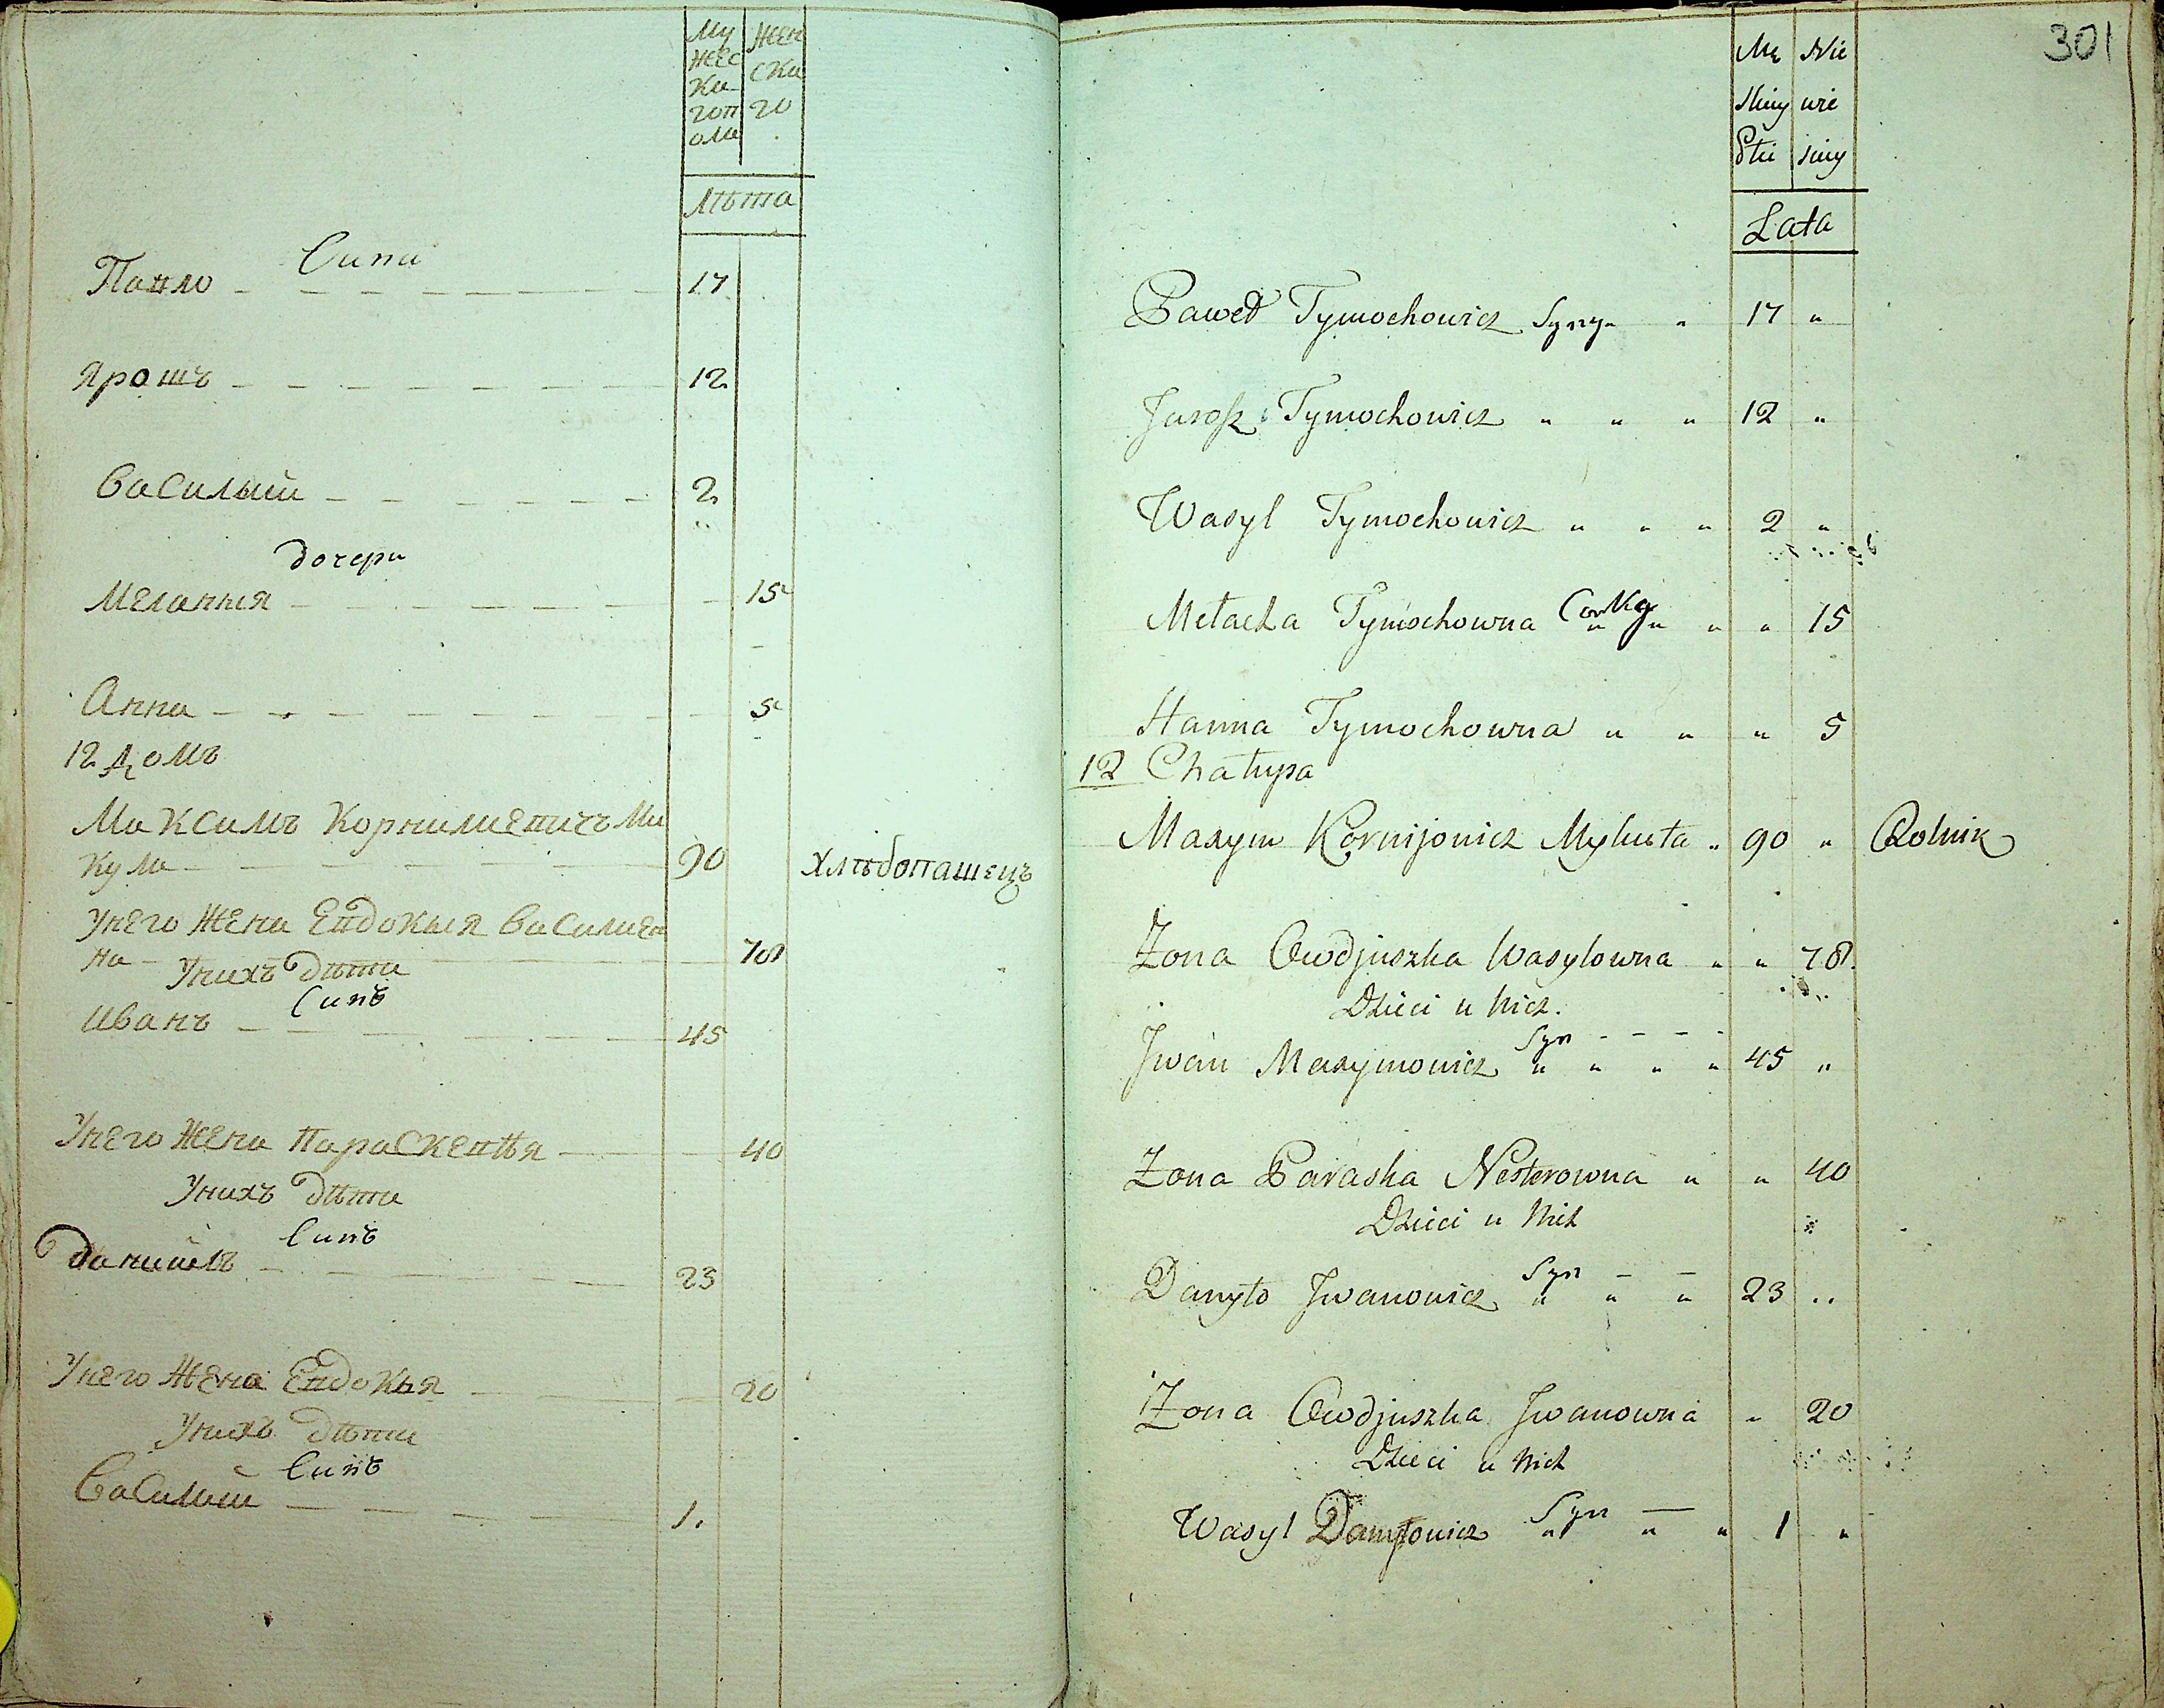 Му
жес
ка-
гоп
ола
жен
ска
го
Лѣта
Сини
Павло 17
Ярошъ 12
Василый 2
дочери
Меланыя 15
Анна 5
12 домъ
Максимъ Корнилиевичъ Ми
кула 90 хлѣбопашецъ
Унего жена Евдокыя Василиев
на 78
Унихъ дѣти
Синъ
Иванъ 45
Унего жена Параскевыя 40
Унихъ дѣти
Синъ
Данииłъ 23
Унего жена Евдокыя 20
Унихъ дѣти
Синъ
Василый 1.
301
Mę
skiey
Płci
Nie
wie
sciey
Lata
Paweł Tymochowicz Syny 17 "
Jarosz Tymochowicz " " " 12 "
Wasyl Tymochowicz " " " 2 "
Mełacha Tymochowna Corky " " 15
Hanna Tymochowna " " " 5
12 Chałupa
Maxym Kornijowicz Mykuła " 90 " Rolnik
Żona Owdjuszka Wasylowna " " 78.
Dzieci u nich.
Syn
Jwan Maxymowicz " " " " 45 "
Żona Paraska Nesterowna " " 40
Dzieci u nich
Syn
Danyło Jwanowicz " " " 23 "
Żona Owdjuszka Jwanowna " 20
Dzieci u nich
Wasyl Danyłowicz Syn " " " 1 "